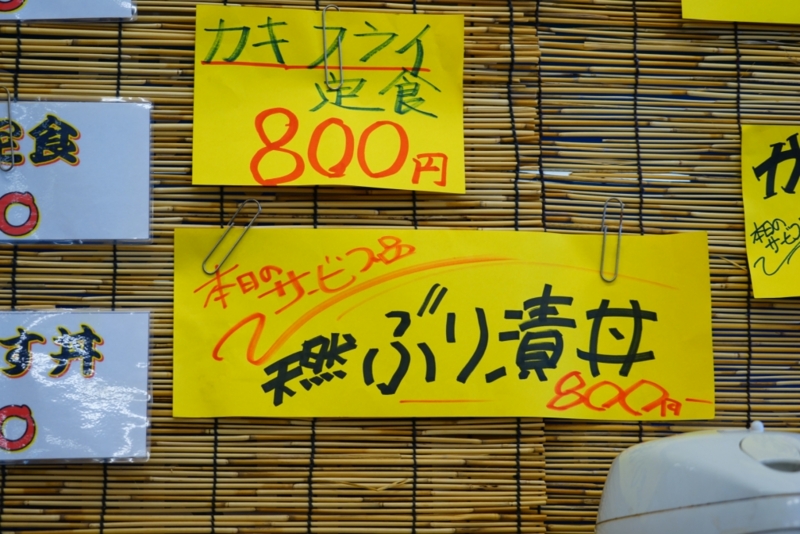 カキフライ
定食
800円
定食
0
本日の
サービス品
天然ぶり漬丼
800円
す丼
0
カ
本日の
サービ